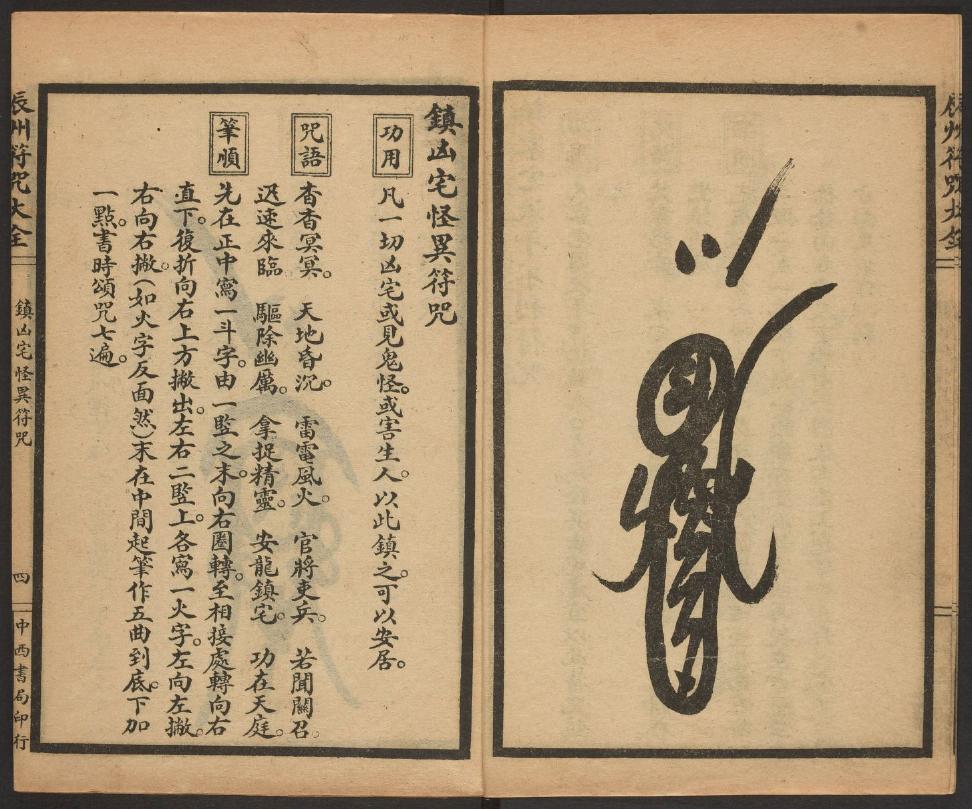 辰州符咒大全
鎮凶宅怪異符咒
功用 凡一切凶宅或見鬼怪。或害生人。以此鎮之。可以安居。
咒語 杳杳冥冥。 天地昏沉。 雷電風火。 官將吏兵。 若聞關召。
迅速來臨 驅除幽厲。 拿捉精靈。 安龍鎮宅。 功在天庭。
筆順 先在正中寫一斗字。由一監之末。向右圈轉。至相接處轉向右
直下。復折向右上方撇出。左右二監上。各寫一火字。左向左撇。
右向右撇。(如火字反面然)末在中間起筆作五曲到底。下加
一點。書時頌咒七遍。
辰州符咒大全
鎮凶宅怪異符咒
四
中西書局印行